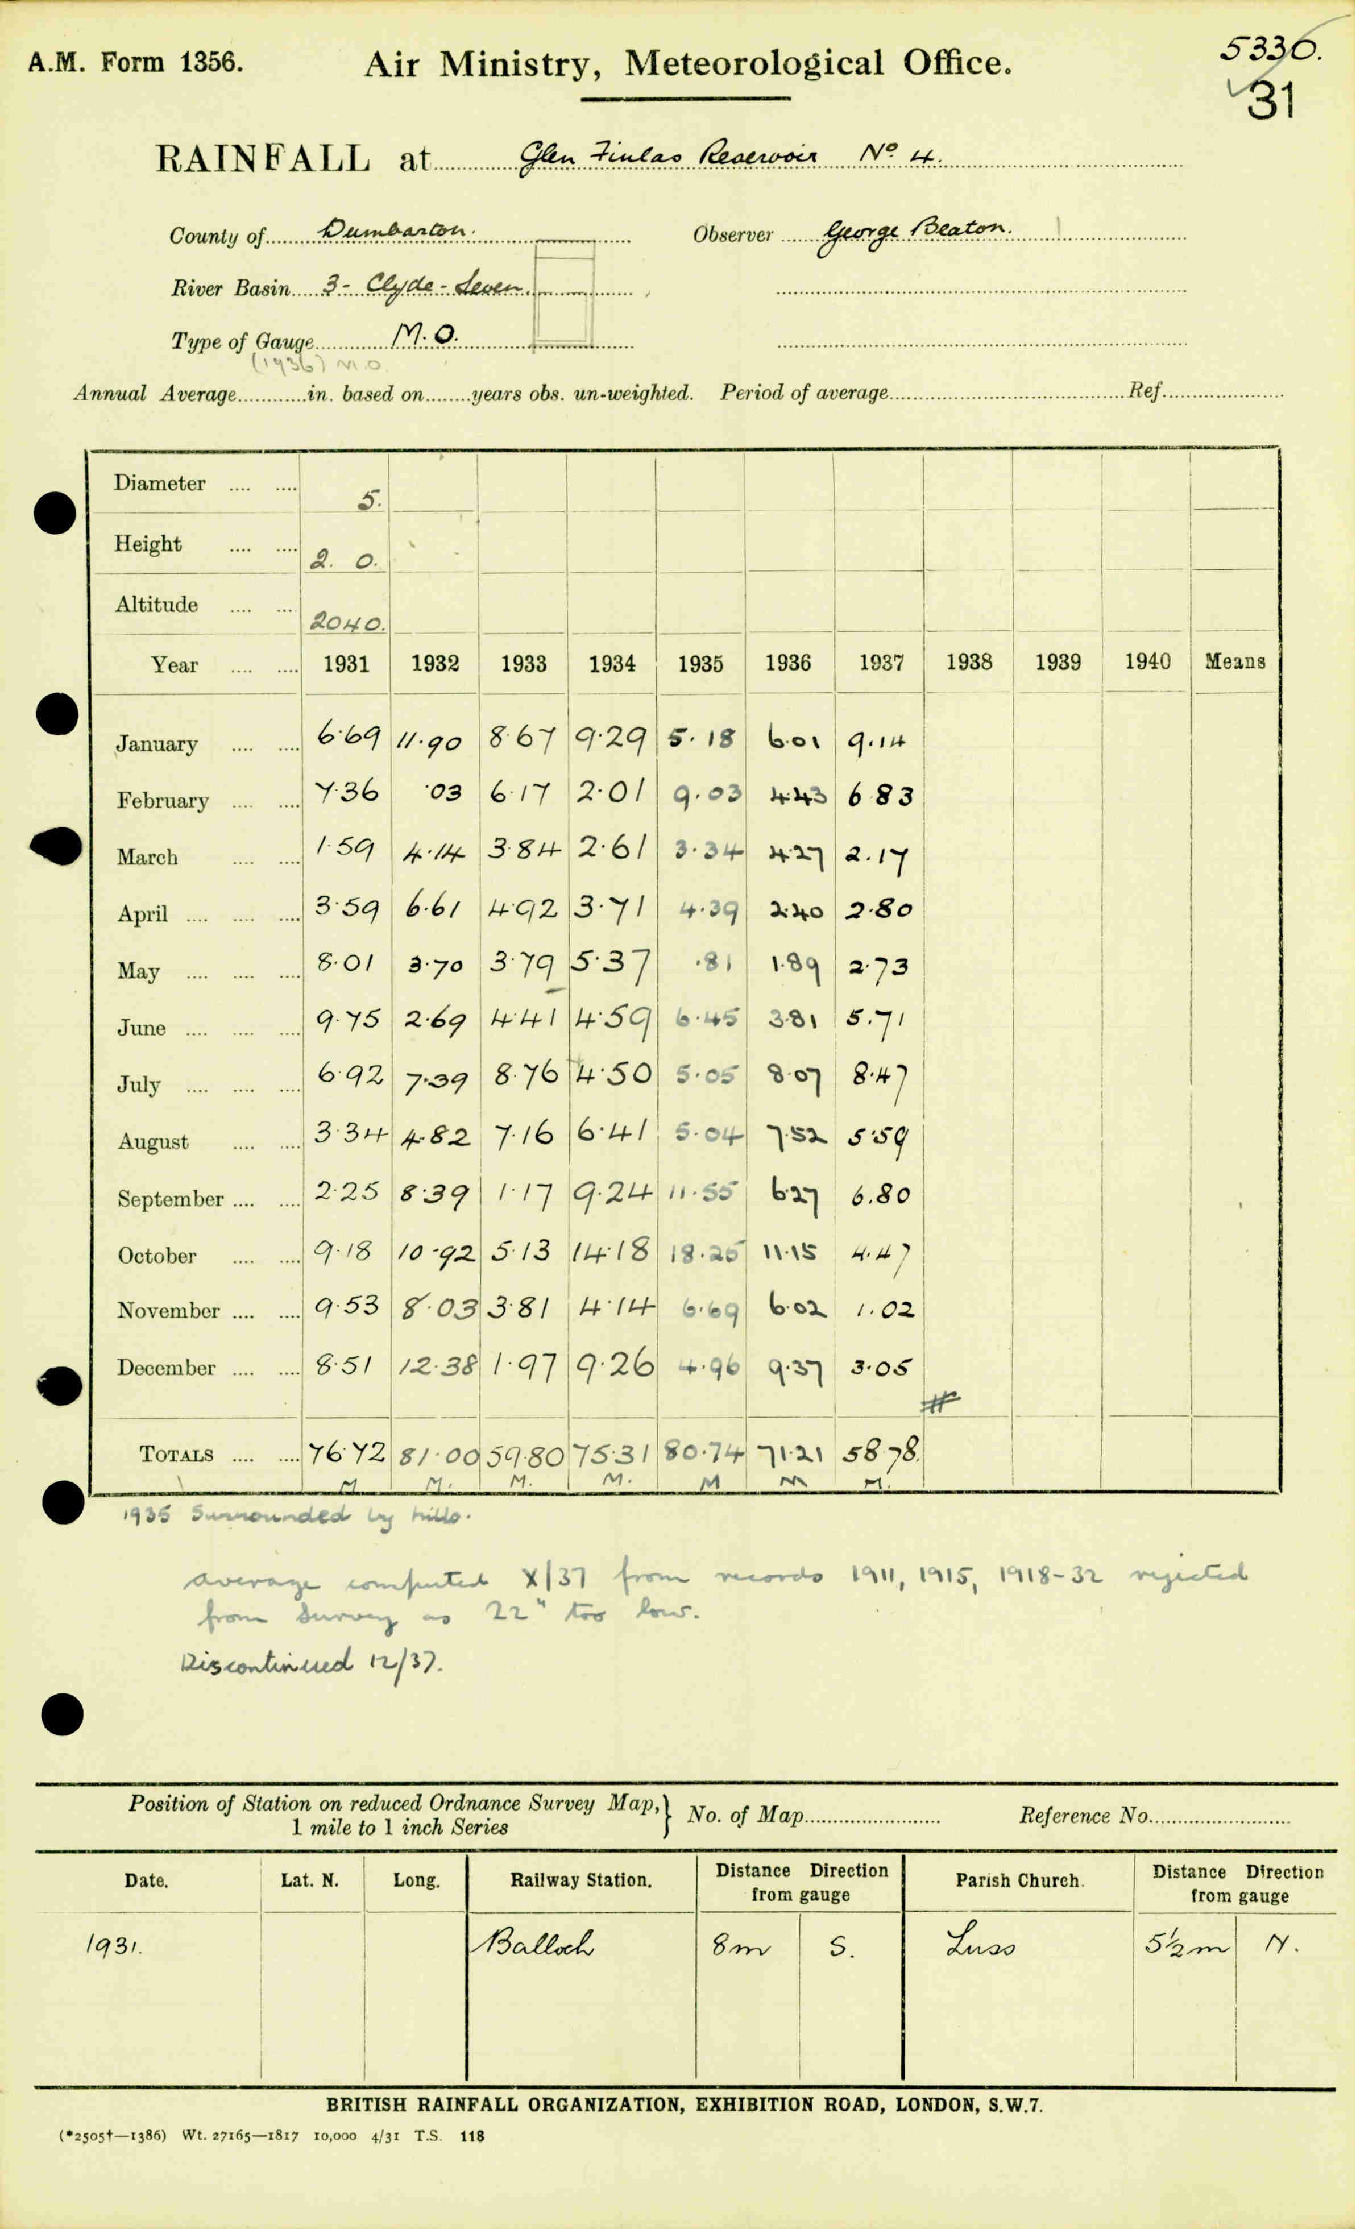 5330.
A.M. Form 1356. Air Ministry, Meteorological Office.
31
RAINFALL at Glen Finlas Reservoir No 4.
County of Dumbarton. Observer George Beaton.
River Basin 3 - Clyde - Leven.
Type of Gauge M.O.
(1936) M.O.
Annual Average in. based on years obs. un-weighted. Period of average Ref.
Diameter 5.
Height 2. 0.
Altitude 2040.
Year 1931 1932 1933 1934 1935 1936 1937 1938 1939 1940 Means
January 6.69 11.90 8.67 9.29 5.18 6.01 9.14
February 7.36 .03 6.17 2.01 9.03 4.43 6.83
March 1.59 4.14 3.84 2.61 3.34 4.27 2.17
April 3.59 6.61 4.92 3.71 4.39 2.40 2.80
May 8.01 3.70 3.79 5.37 .81 1.89 2.73
June 9.75 2.69 4.41 4.59 6.45 3.81 5.71
July 6.92 7.39 8.76 4.50 5.05 8.07 8.47
August 3.34 4.82 7.16 6.41 5.04 7.52 5.59
September 2.25 8.39 1.17 9.24 11.55 6.27 6.80
October 9.18 10.92 5.13 14.18 18.25 11.15 4.47
November 9.53 8.03 3.81 4.14 6.69 6.02 1.02
December 8.51 12.38 1.97 9.26 4.96 9.37 3.05
TOTALS 76.72 81.00 59.80 75.31 80.74 71.21 58.78
M M. M. M. M M M.
1935 Surrounded by hills.
average computed X/37 from records 1911, 1915, 1918-32 rejected
from Survey as 22" too low.
Discontinued 12/37.
Position of Station on reduced Ordnance Survey Map, } No. of Map Reference No.
1 mile to 1 inch Series
Date. Lat. N. Long. Railway Station. Distance Direction from gauge Parish Church. Distance Direction from gauge
1931. Balloch 8m S. Luss 5½m N.
BRITISH RAINFALL ORGANIZATION, EXHIBITION ROAD, LONDON, S.W.7.
(*2505†—1386) Wt. 27165—1817 10,000 4/31 T.S. 118